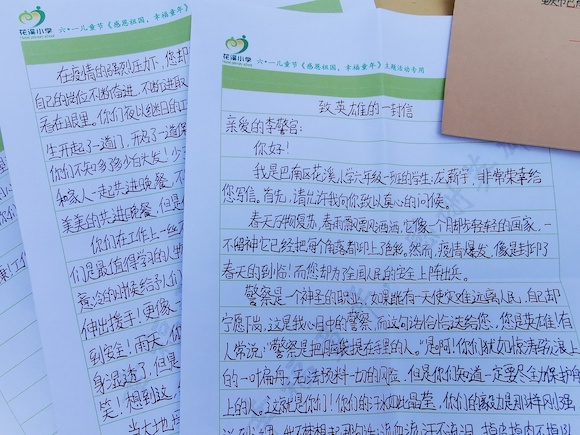 花溪小学
六·一儿童节《感恩祖国，幸福童年》
在疫情的强烈压力下，您却
自己的岗位不断奋进，不断进取
看在眼里。你们夜以继日的工
生开起了一道门，开起了一道
你们不知多了多少白大发！少
和家人一起共进晚餐，不
美美的共进晚餐，但是
你们在工作上一丝
们是最值得学习的人
意冷的时候给予人们
伸出援手！更像一
到安全！雨天，你
身湿透了，但是
笑！想到这，
当大地
花溪小学
六·一儿童节《感恩祖国，幸福童年》主题活动专用
致英雄的一封信
亲爱的李警官：
你好！
我是巴南区花溪小学六年级一班的学生：龙新宇，非常荣幸给
您写信。首先，请允许我向你致以真心的问候。
春天万物复苏，春雨飘飘洒洒，它像一个脚步轻轻的画家，一
不留神它已经把每个角落都印上了色彩。然而，疫情爆发，像是封印了
春天的到临！而您却为全国人民的安全上阵出兵。
警察是一个神圣的职业，如果能有一天使灾难远离人民，自己却
宁愿下岗，这是我心目中的警察，而这句话恰恰送给您，您是英雄！有
人常说：“警察是把脑袋提在手里的人。”是啊！你们犹如惊涛骇浪上
的一叶扁舟，无法预料一切的风险，但是你们知道一定要尽全力保护
上的人。这就是你们！你们的汗水如此晶莹，你们的毅力是那样刚强
流血流汗不流泪，掉皮掉肉不掉队